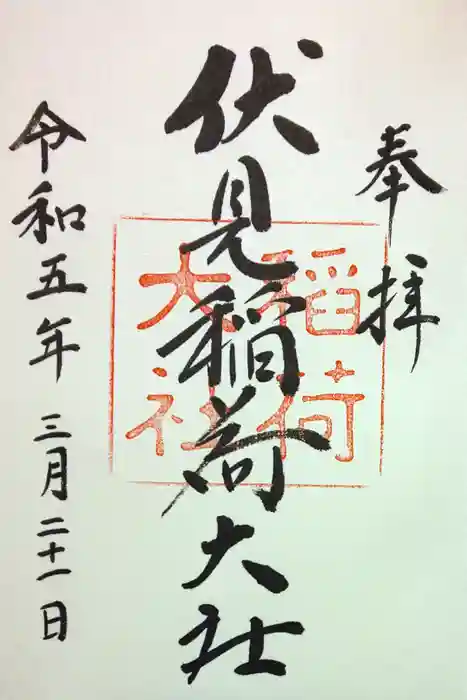 奉拝
伏見稲荷大社
稲荷
大社
令和五年 三月二十一日